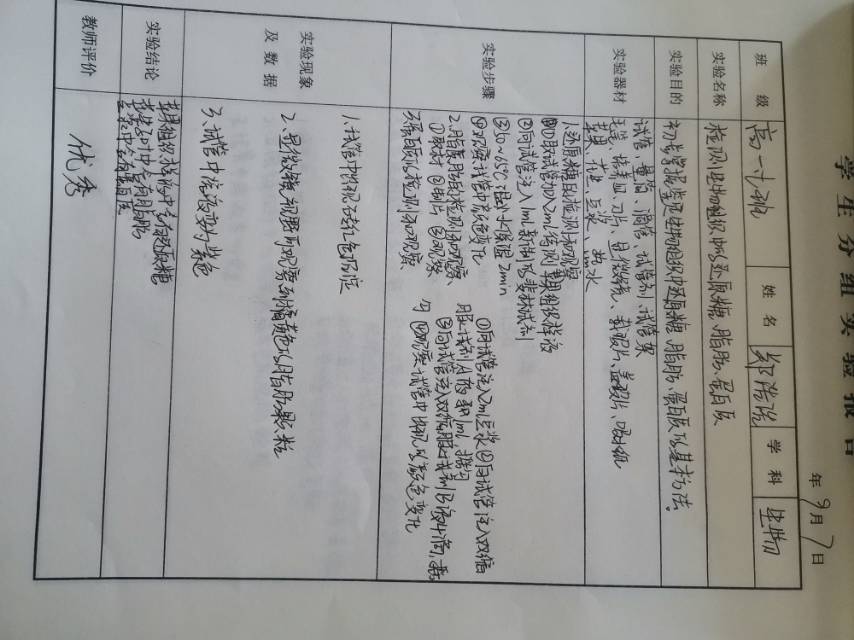 学生分组实验报告
年 9月 7日
班级 高一十班 姓名 郑浩 学科 生物
实验名称 检测生物组织中的还原糖、脂肪、蛋白质
实验目的 初步掌握鉴定生物组织中还原糖、脂肪、蛋白质的基本方法。
实验器材 试管、量筒、滴管、试管剂、试管架
玉笔、培养皿、刀片、显微镜、载玻片、盖玻片、吸水纸
苹果、花生、豆浆、热水
实验步骤 1.还原糖的检测和观察
①取试管加入2ml待测苹果组织样液
②向试管注入1ml新制的斐林试剂
③50~65℃温水中保温2min
④观察试管中颜色变化
2.脂肪的检测和观察
①取材 ②制片 ③观察
3.蛋白质的检测和观察
①向试管注入2ml豆浆 ②向试管注入双缩
脲试剂A液1ml 摇匀
③向试管注入双缩脲试剂B液4滴,摇
匀 ④观察试管中出现的颜色变化
实验现象及数据
1.试管中出现砖红色沉淀
2.显微镜视野可观察到橘黄色的脂肪颗粒
3.试管中溶液变为紫色
实验结论 苹果组织样液中含有还原糖
花生切片中含有脂肪
豆浆中含有蛋白质
教师评价 优秀